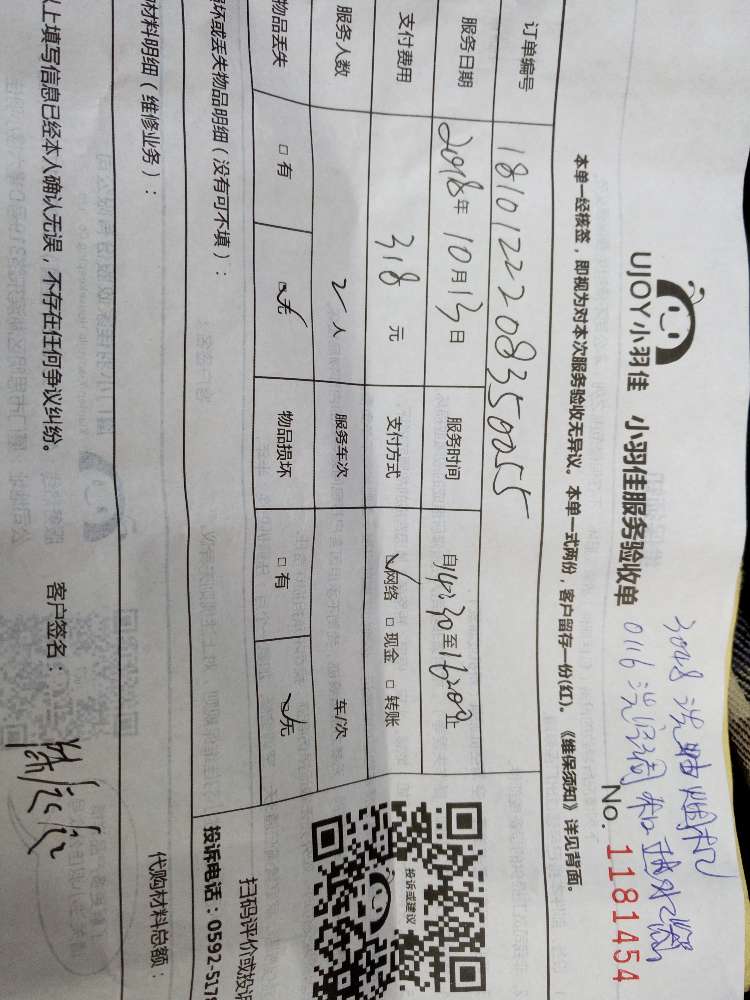 3008 洗油烟机
0116 洗空调和热水器
UJOY小羽佳 小羽佳服务验收单 No. 1181454
本单一经核签，即视为对本次服务验收无异议。本单一式两份，客户留存一份(红)。《维保须知》详见背面。
订单编号 1810122208350055
服务日期 2018年10月13日 服务时间 自14:30至16:20止
支付费用 318元 支付方式 ☑网络 □现金 □转账
服务人数 2人 服务车次 车/次
物品丢失 □有 ☑无 物品损坏 □有 ☑无
坏或丢失物品明细（没有可不填）：
材料明细（维修业务）： 代购材料总额：
以上填写信息已经本人确认无误，不存在任何争议纠纷。 客户签名：
投诉或建议
扫码评价或投诉
投诉电话：0592-517